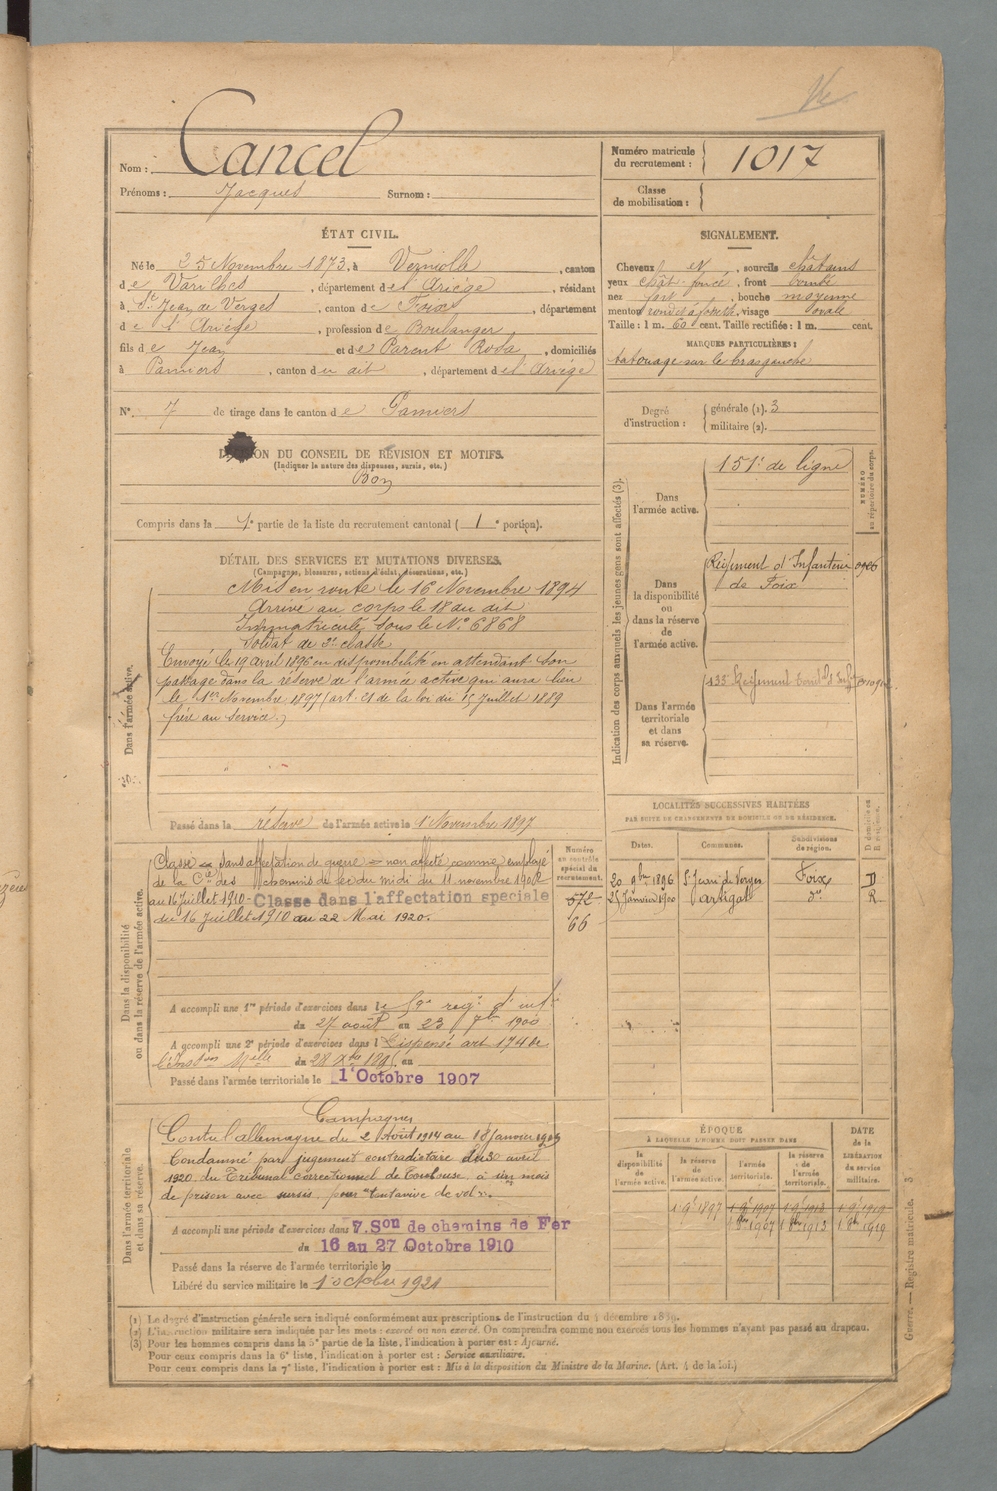 Nom : Cancel
Prénoms : Jacques Surnom :
Numéro matricule du recrutement : 1017
Classe de mobilisation :
ÉTAT CIVIL.
Né le 25 Novembre 1873, à Verniolle, canton
de Varilhes, département de l'Ariège, résidant
à St Jean de Verges, canton de Foix, département
de l'Ariège, profession de Boulanger,
fils de Jean et de Parent Rosa, domiciliés
à Pamiers, canton du dit, département de l'Ariège
N° 7 de tirage dans le canton de Pamiers
SIGNALEMENT.
Cheveux et, sourcils châtains
yeux chât. foncé, front bombé
nez fort, bouche moyenne
menton rond et à fossette, visage ovale
Taille : 1 m. 60 cent. Taille rectifiée : 1 m. cent.
MARQUES PARTICULIÈRES :
tatouage sur le bras gauche
Degré d'instruction : générale (1). 3
militaire (2).
DÉCISION DU CONSEIL DE RÉVISION ET MOTIFS.
(Indiquer la nature des dispenses, sursis, etc.)
Bon
Compris dans la 1e partie de la liste du recrutement cantonal ( 1e portion).
Indication des corps auxquels les jeunes gens sont affectés (3).
NUMÉRO au répertoire du corps.
Dans l'armée active.
151e de ligne
Dans la disponibilité ou dans la réserve de l'armée active.
Régiment d'Infanterie
de Foix
Dans l'armée territoriale et dans sa réserve.
133e Régiment
DÉTAIL DES SERVICES ET MUTATIONS DIVERSES.
(Campagnes, blessures, actions d'éclat, décorations, etc.)
Dans l'armée active.
Mis en route le 16 Novembre 1894
Arrivé au corps le 18 du dit
Immatriculé sous le N° 6868
Soldat de 2e classe
Envoyé le 19 avril 1896 en disponibilité en attendant son
passage dans la réserve de l'armée active qui aura lieu
le 1er Novembre 1897 (art. 21 de la loi du 15 Juillet 1889
frère au service.)
Passé dans la réserve de l'armée active le 1 Novembre 1897
Dans la disponibilité ou dans la réserve de l'armée active.
Numéro au contrôle spécial du recrutement.
Classé sans affectation de guerre non affecté comme employé
de la Cie des chemins de fer du midi du 11 novembre 1902
au 16 Juillet 1910 - Classé dans l'affectation spéciale
du 16 Juillet 1910 au 22 Mai 1920.
572
66
A accompli une 1re période d'exercices dans le 59e régt d'inft
du 27 août au 23 7bre 1900
A accompli une 2e période d'exercices dans l Dispensé art 174 de
l'Inston Melle du 28 Xbre 1895 au
Passé dans l'armée territoriale le 1er Octobre 1907
LOCALITÉS SUCCESSIVES HABITÉES
PAR SUITE DE CHANGEMENTS DE DOMICILE OU DE RÉSIDENCE.
Dates. Communes. Subdivisions de région. D domicile ou R résidence.
20 9bre 1896 St Jean de Verges Foix D
25 Janvier 1900 Artigat do R
Dans l'armée territoriale et dans sa réserve.
Campagnes
Contre l'allemagne du 2 Août 1914 au 18 Janvier 1919
Condamné par jugement contradictoire du 30 avril
1920 du Tribunal correctionnel de Toulouse à un mois
de prison avec sursis pour tentative de vol.
A accompli une période d'exercices dans 7. Son de chemins de Fer
du 16 au 27 Octobre 1910
Passé dans la réserve de l'armée territoriale le
Libéré du service militaire le 1er octobre 1921
ÉPOQUE
À LAQUELLE L'HOMME DOIT PASSER DANS
DATE de la LIBÉRATION du service militaire.
la disponibilité de l'armée active. la réserve de l'armée active. l'armée territoriale. la réserve de l'armée territoriale.
1 9e 1897 1 9e 1907 1 9e 1913 1 9e 1919
1 8e 1907 1 8e 1913 1 8e 1919
(1) Le degré d'instruction générale sera indiqué conformément aux prescriptions de l'instruction du 4 décembre 1889.
(2) L'instruction militaire sera indiquée par les mots : exercé ou non exercé. On comprendra comme non exercés tous les hommes n'ayant pas passé au drapeau.
(3) Pour les hommes compris dans la 5e partie de la liste, l'indication à porter est : Ajourné.
Pour ceux compris dans la 6e liste, l'indication à porter est : Service auxiliaire.
Pour ceux compris dans la 7e liste, l'indication à porter est : Mis à la disposition du Ministre de la Marine. (Art. 4 de la loi.)
Guerre. — Registre matricule. 3